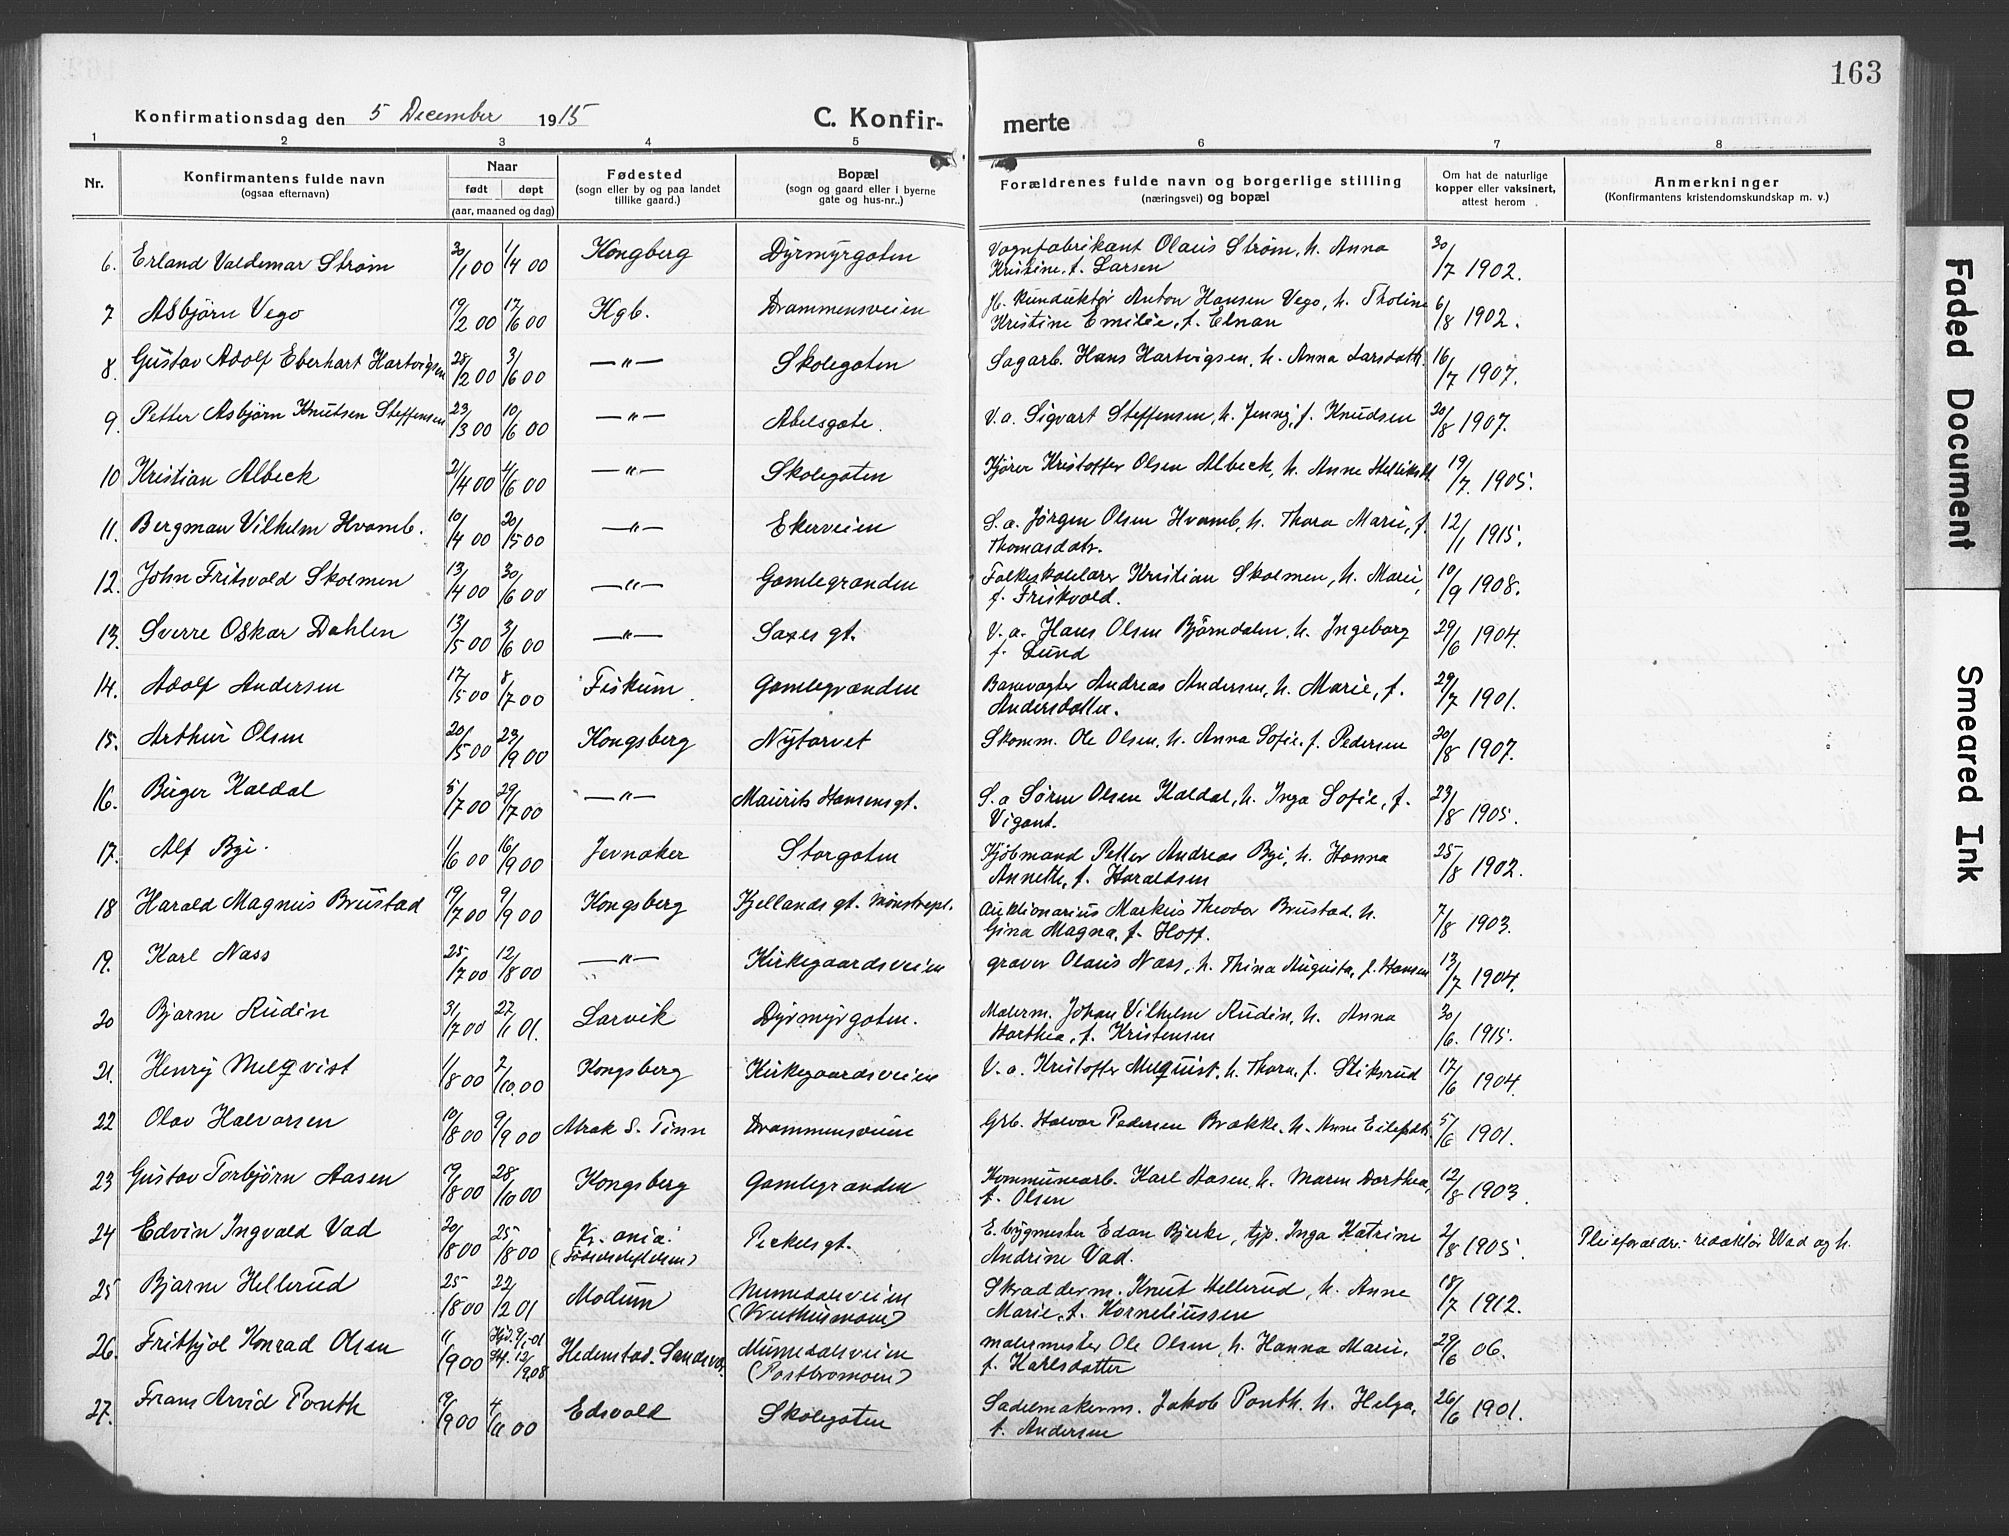 163
Konfirmationsdag den 5 December 1915
C. Konfir- merte
1 2 3 4 5 6 7 8
Nr.
Konfirmantens fulde navn
(ogsaa efternavn)
Naar
født døpt
(aar, maaned og dag)
Fødested
(sogn eller by og paa landet
tillike gaard.)
Bopæl
(sogn og gaard eller i byerne
gate og hus-nr..)
Forældrenes fulde navn og borgerlige stilling
(næringsvei) og bopæl
Om hat de naturlige
kopper eller vaksinert,
attest herom
Anmerkninger
(Konfirmantens kristendomskundskap m. v.)
6. Erland Valdemar Strøm 30/1 00 1/4 00 Kongberg Dyrmyrgaten Vognfabrikant Olaus Strøm, h. Anna 30/7 1902.
Kristine, f. Larsen
7 Asbjørn Vego 19/2 00 17/6 00 Kgb. Drammensveien Jb. kunduktør Anton Hansen Vego, h. Tholine 6/8 1902.
Kristine Emilie, f. Elnan
8. Gustav Adolf Eberhart Hartvigsen 28/2 00 3/6 00 —"— Skolegaten Sagarb. Hans Hartvigsen, h. Anna Larsdatt. 16/7 1907.
9. Petter Asbjørn Knutsen Steffensen 23/3 00 10/6 00 —"— Abelsgate. V.a. Sigvart Steffensen, h. Jenny, f. Knudsen 20/8 1907.
10 Kristian Albeck 2/4 00 4/6 00 —"— Skolegaten Kjører Kristoffer Olsen Albeck, h. Anne Helliksdt 19/7. 1905.
11. Bergman Vilhelm Hvamb. 10/4 00 20/5 00 —"— Ekerveien S.a. Jørgen Olsen Hvamb, h. Thora Marie, f. 12/1 1915.
Thomasdatr.
12. John Fritsvold Skolmen 13/4 00 30/6 00 —"— Gamlegrænden Folkeskolelærer Kristian Skolmen, h. Marie, 10/9 1908.
f. Friskvold.
13. Sverre Oskar Dahlen 13/5 00 3/6 00 —"— Saxes gt. V.a. Hans Olsen Bjørndalen, h. Ingeborg 29/6 1904.
f. Lund
14. Adolf Andersen 17/5 00 8/7 00 Fiskum. Gamlegrænden Banevogter Andreas Andersen, h. Marie, f. 29/7 1901.
Andersdatter.
15. Arthur Olsen 20/5 00 23/9 00 Kongsberg Nytorvet Skomm. Ole Olsen, h. Anna Sofie, f. Pedersen 20/8 1907.
16. Birger Kaldal 5/7 00 29/7 00 —"— Maurits Hansens gt. S.a Søren Olsen Kaldal, h. Inga Sofie, f. 23/8 1905.
Vigant.
17. Alf Bye. 1/6 00 16/9 00 Jevnaker Storgaten Kjøbmand Petter Andreas Bye, h. Hanna 25/8 1902.
Annette, f. Haraldsen
18 Harald Magnus Brustad 19/7 00 9/9 00 Kongsberg Kjellands gt. Mønstrepl. Auktionarius Markus Theodor Brustad. h. 7/8 1903.
Gina Magna, f. Hoff.
19. Karl Næss 25/7 00 12/8 00 —"— Kirkegaardsveien graver Olaus Næss, h. Thina Augusta, f. Hansen 13/7 1904.
20 Bjarne Rudin 31/7 00 27/1 01. Larvik Dyrmyrgaten. Malerm. Johan Vilhelm Rudin, h. Anna 30/6. 1915.
Harthea, f. Kristensen
21. Henry Melqvist 1/8 00 2/10.00 Kongsberg Kirkegaardsveien V.a. Kristoffer Melquist, h. Thora, f. Stiksrud 17/6 1904.
22 Olav Halvorsen 10/8 00 9/9 00 Atrak S. Tinn Drammensveien Grb. Halvor Pedersen Brække. h. Anne Eilefsdt. 5/6 1901.
23 Gustav Torbjørn Aasen 19/8 00 28/10 00 Kongsberg Gamlegrænden Kommunearb. Karl Aasen, h. Maren Dorthea, 12/8 1903.
f. Olsen
24 Edvin Ingvald Vad 20/8 00 25/8 00 Kr. ania. Peckelsgt. E. bygmester Edan Bjerke, tjp. Inga Katrine 2/8 1905. Pleieforældre: redaktør Wad og h.
(Fødselsstiftelsen) Andrine Vad.
25 Bjarne Hellerud 25/8 00 22/2 01 Modum Numedalsveien Skrædderm. Knut Hellerud, h. Anne 18/7 1912.
(Kruthusmoen) Marie, f. Korneliussen
26. Frithjof Konrad Olsen 11/9 00 Hjd. 9/1-01 Hedenstad. Sandsvær. Numedalsveien malermester Ole Olsen, h. Hanna Marie. 29/6 06.
St. 12/9 08 (Postbromoen) f. Karlsdatter
27. Frans Arvid Ponth 19/9 00 4/11 00 Edsvold Skolegaten Sadelmakerm. Jakob Ponth. h. Helga, 26/6 1901.
f. Andersen
Faded Document
Smeared Ink